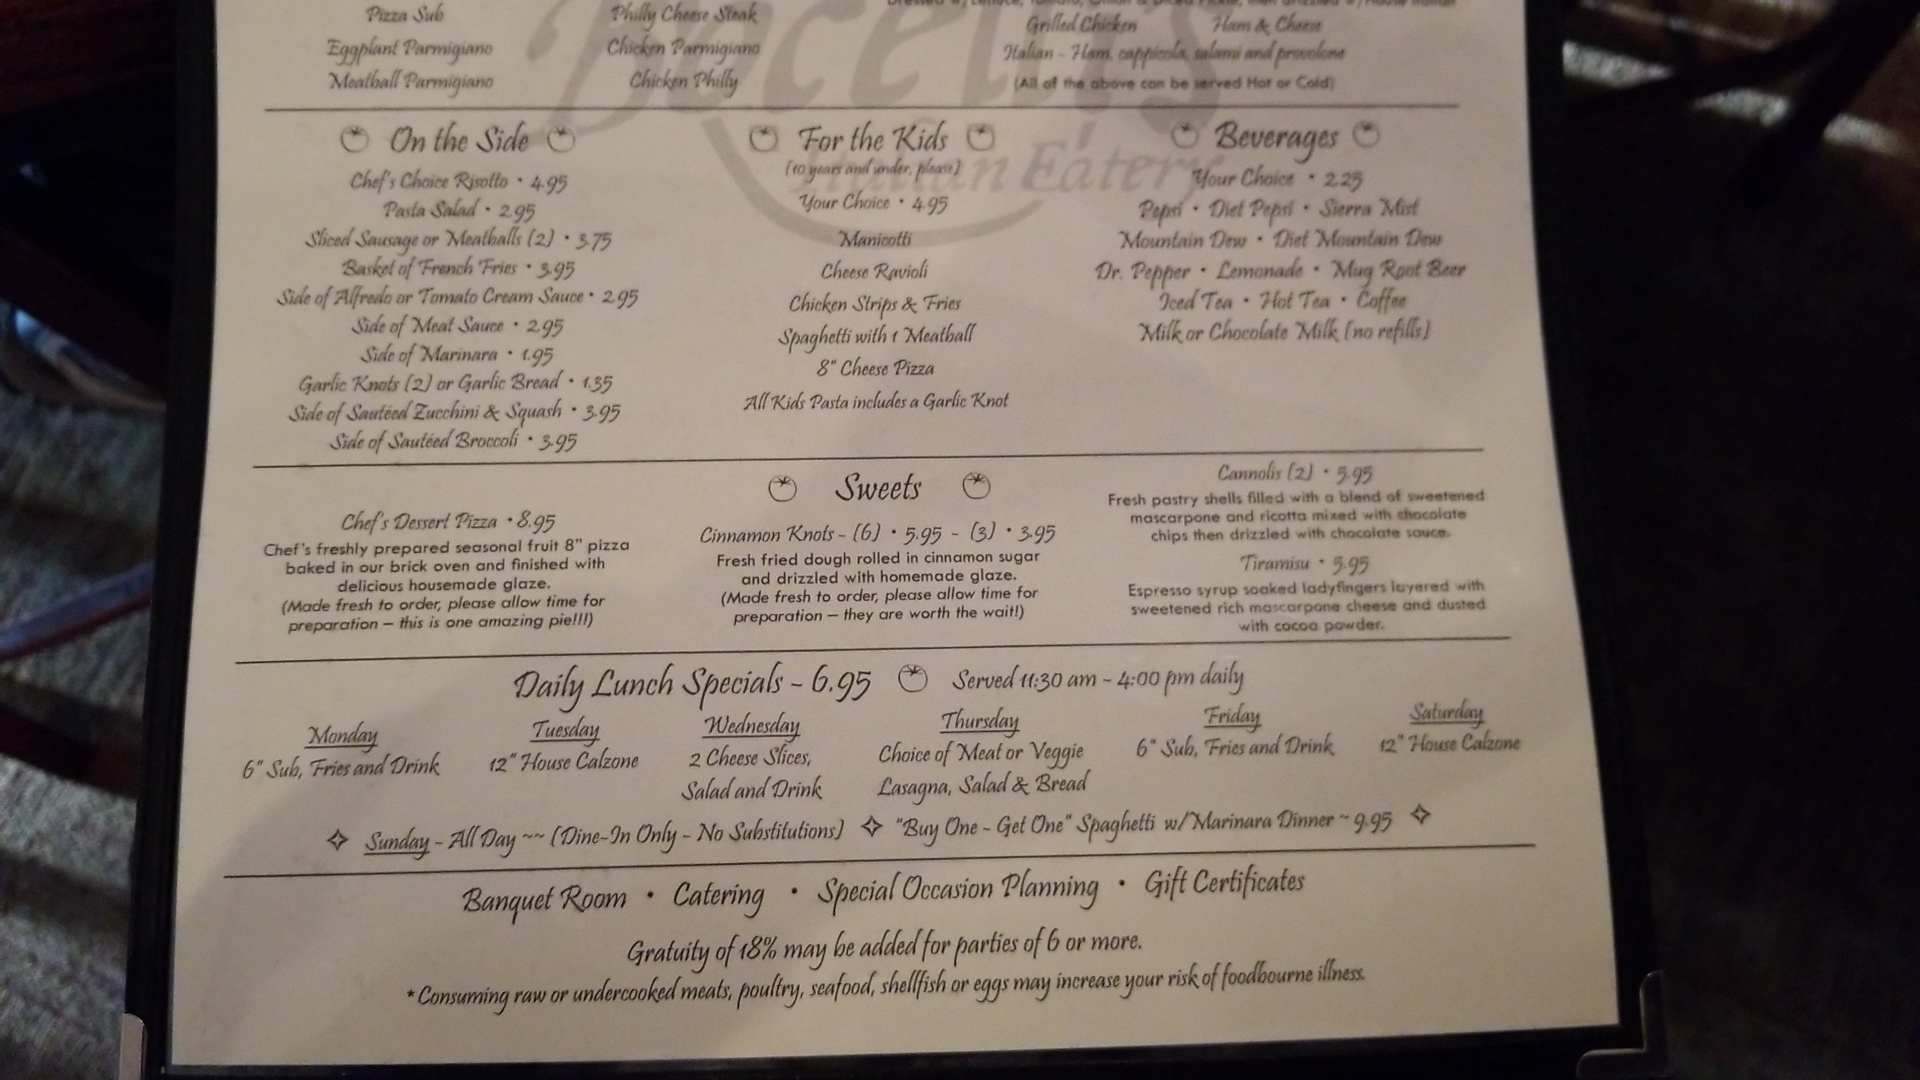 Pizza Sub
Eggplant Parmigiano
Meatball Parmigiano
Philly Cheese Steak
Chicken Parmigiano
Chicken Philly
Grilled Chicken Ham & Cheese
Italian - Ham, cappicola, salami and provolone
(All of the above can be served Hot or Cold)
Italian Eatery
On the Side
Chef's Choice Risotto • 4.95
Pasta Salad • 2.95
Sliced Sausage or Meatballs (2) • 3.75
Basket of French Fries • 3.95
Side of Alfredo or Tomato Cream Sauce • 2.95
Side of Meat Sauce • 2.95
Side of Marinara • 1.95
Garlic Knots (2) or Garlic Bread • 1.35
Side of Sautéed Zucchini & Squash • 3.95
Side of Sautéed Broccoli • 3.95
For the Kids
(10 years and under, please)
Your Choice • 4.95
Manicotti
Cheese Ravioli
Chicken Strips & Fries
Spaghetti with 1 Meatball
8" Cheese Pizza
All Kids Pasta includes a Garlic Knot
Beverages
Your Choice • 2.25
Pepsi • Diet Pepsi • Sierra Mist
Mountain Dew • Diet Mountain Dew
Dr. Pepper • Lemonade • Mug Root Beer
Iced Tea • Hot Tea • Coffee
Milk or Chocolate Milk (no refills)
Sweets
Chef's Dessert Pizza • 8.95
Chef's freshly prepared seasonal fruit 8" pizza
baked in our brick oven and finished with
delicious housemade glaze.
(Made fresh to order, please allow time for
preparation – this is one amazing pie!!!)
Cinnamon Knots - (6) • 5.95 - (3) • 3.95
Fresh fried dough rolled in cinnamon sugar
and drizzled with homemade glaze.
(Made fresh to order, please allow time for
preparation – they are worth the wait!)
Cannolis (2) • 5.95
Fresh pastry shells filled with a blend of sweetened
mascarpone and ricotta mixed with chocolate
chips then drizzled with chocolate sauce.
Tiramisu • 5.95
Espresso syrup soaked ladyfingers layered with
sweetened rich mascarpone cheese and dusted
with cocoa powder.
Daily Lunch Specials - 6.95 Served 11:30 am - 4:00 pm daily
Monday
6" Sub, Fries and Drink
Tuesday
12" House Calzone
Wednesday
2 Cheese Slices,
Salad and Drink
Thursday
Choice of Meat or Veggie
Lasagna, Salad & Bread
Friday
6" Sub, Fries and Drink
Saturday
12" House Calzone
Sunday - All Day ~~ (Dine-In Only - No Substitutions) ✧ "Buy One - Get One" Spaghetti w/Marinara Dinner ~ 9.95
Banquet Room • Catering • Special Occasion Planning • Gift Certificates
Gratuity of 18% may be added for parties of 6 or more.
*Consuming raw or undercooked meats, poultry, seafood, shellfish or eggs may increase your risk of foodbourne illness.